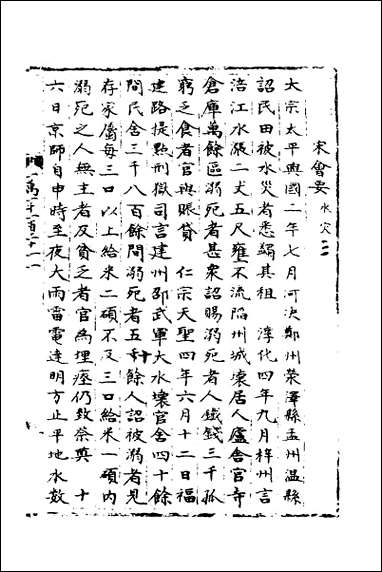 宋會要 水灾二
太宗太平興國二年七月河決鄭州滎澤縣孟州温縣
詔民田被水災者悉蠲其租 淳化四年九月梓州言
涪江水漲二丈五尺壅不流陷州城壞居人廬舍官寺
倉庫萬餘區溺死者甚衆詔賜溺死者人鐵錢三千孤
窮乏食者官與賑貸 仁宗天聖四年六月十二日福
建路提㸃刑獄司言建州邵武軍大水壞官舍四十餘
間民舍三千八百餘間溺死者五十餘人詔被溺者見
存家屬每三口以上給米二碩不及三口給米一碩内
溺死之人無主者及貧乏者官為埋瘞仍致祭奠 十
六日京師自申時至夜大雨雷電達明方止平地水數